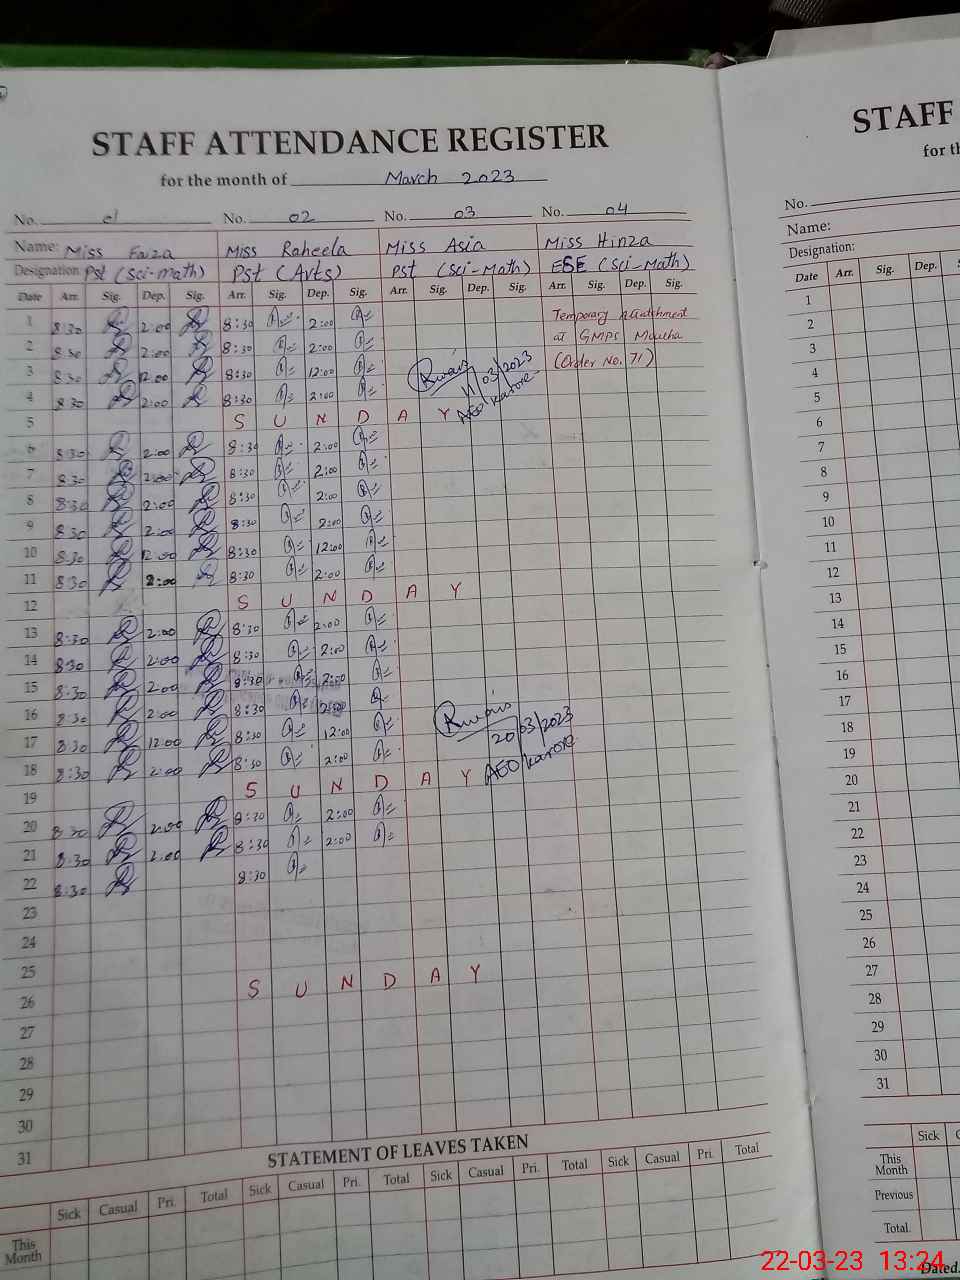 STAFF ATTENDANCE REGISTER
for the month of March 2023
No. 01 No. 02 No. 03 No. 04
Name: Miss Faiza Miss Raheela Miss Asia Miss Hinza
Designation: Pst (Sci-math) Pst (Arts) Pst (Sci-Math) ESE (Sci-Math)
Date Arr. Sig. Dep. Sig. Arr. Sig. Dep. Sig. Arr. Sig. Dep. Sig. Arr. Sig. Dep. Sig.
1 8:30 2:00 8:30 2:00 Temporary Attatchment
2 8:30 2:00 8:30 2:00 at GMPS
3 8:30 12:00 8:30 12:00 (Order No. 71)
4 8:30 2:00 8:30 2:00 11/03/2023
5 S U N D A Y AEO karore
6 8:30 2:00 8:30 2:00
7 8:30 2:00 8:30 2:00
8 8:30 2:00 8:30 2:00
9 8:30 2:00 8:30 2:00
10 8:30 12:00 8:30 12:00
11 8:30 2:00 8:30 2:00
12 S U N D A Y
13 8:30 2:00 8:30 2:00
14 8:30 2:00 8:30 2:00
15 8:30 2:00 8:30 2:00
16 8:30 2:00 8:30
17 8:30 12:00 8:30 12:00 20/03/2023
18 8:30 2:00 8:30 2:00 AEO karore
19 S U N D A Y
20 8:30 2:00 8:30 2:00
21 8:30 2:00 8:30 2:00
22 8:30 8:30
23
24
25
26 S U N D A Y
27
28
29
30
31
STATEMENT OF LEAVES TAKEN
Sick Casual Pri. Total Sick Casual Pri. Total Sick Casual Pri. Total Sick Casual Pri. Total
This Month
STAFF
for th
No.
Name:
Designation:
Date Arr. Sig. Dep. S
1
2
3
4
5
6
7
8
9
10
11
12
13
14
15
16
17
18
19
20
21
22
23
24
25
26
27
28
29
30
31
Sick C
This Month
Previous
Total.
Dated.
22-03-23 13:24